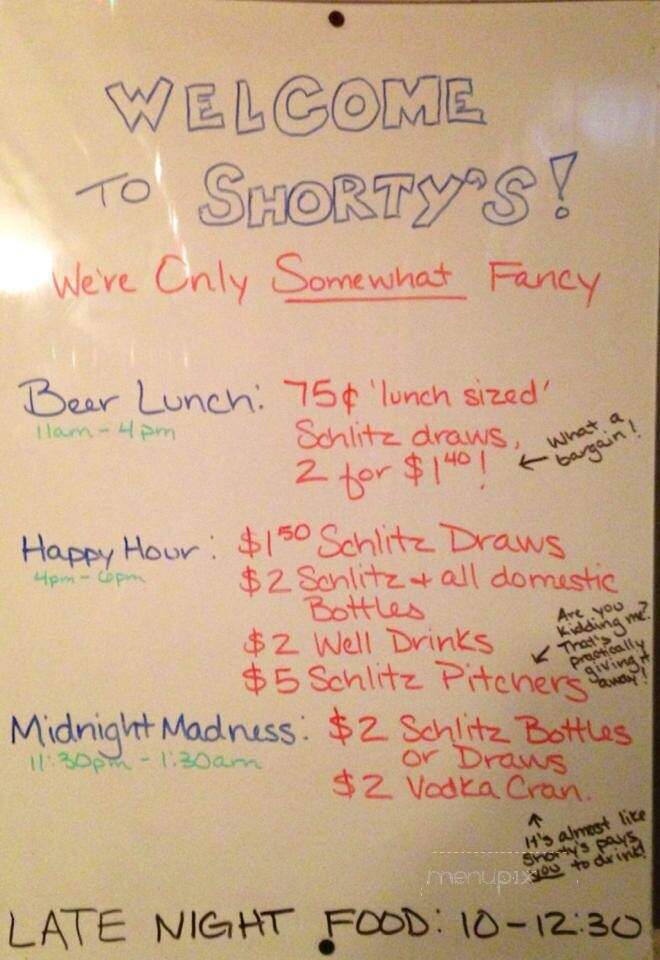 WELCOME
TO SHORTY'S!
We're Only Somewhat Fancy
Beer Lunch: 75¢ 'lunch sized'
11am - 4pm
Schlitz draws,
2 for $1 40!
← What a
bargain!
Happy Hour: $1 50 Schlitz Draws
4pm - 6pm
$2 Schlitz + all domestic
Bottles
$2 Well Drinks
$5 Schlitz Pitchers
Are you
kidding me?
↙ That's
practically
giving it
away!
Midnight Madness: $2 Schlitz Bottles
11:30pm - 1:30am
or Draws
$2 Vodka Cran.
↑
It's almost like
Shorty's pays
you to drink!
menupix
LATE NIGHT FOOD: 10-12:30